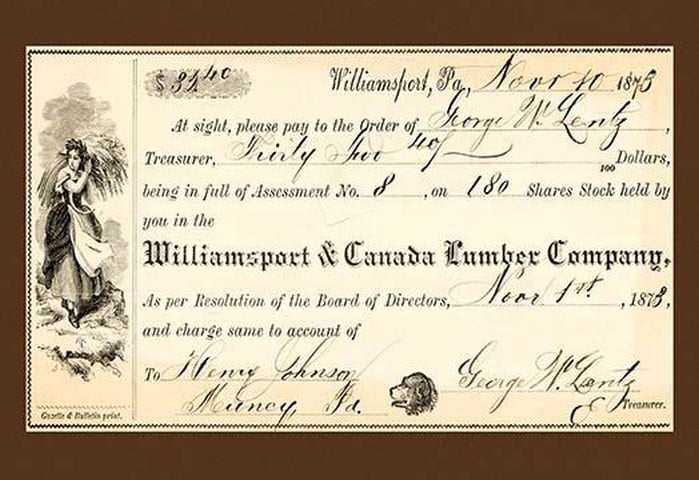 $ 32 40
Williamsport, Pa., Novr 10 1873
At sight, please pay to the Order of George W. Lentz,
Treasurer, Thirty Two 40/100 Dollars,
being in full of Assessment No. 8, on 180 Shares Stock held by
you in the
Williamsport & Canada Lumber Company,
As per Resolution of the Board of Directors, Novr 1st, 1873,
and charge same to account of
To Henry Johnson George W. Lentz
Muncy, Pa. Treasurer.
Gazette & Bulletin print.